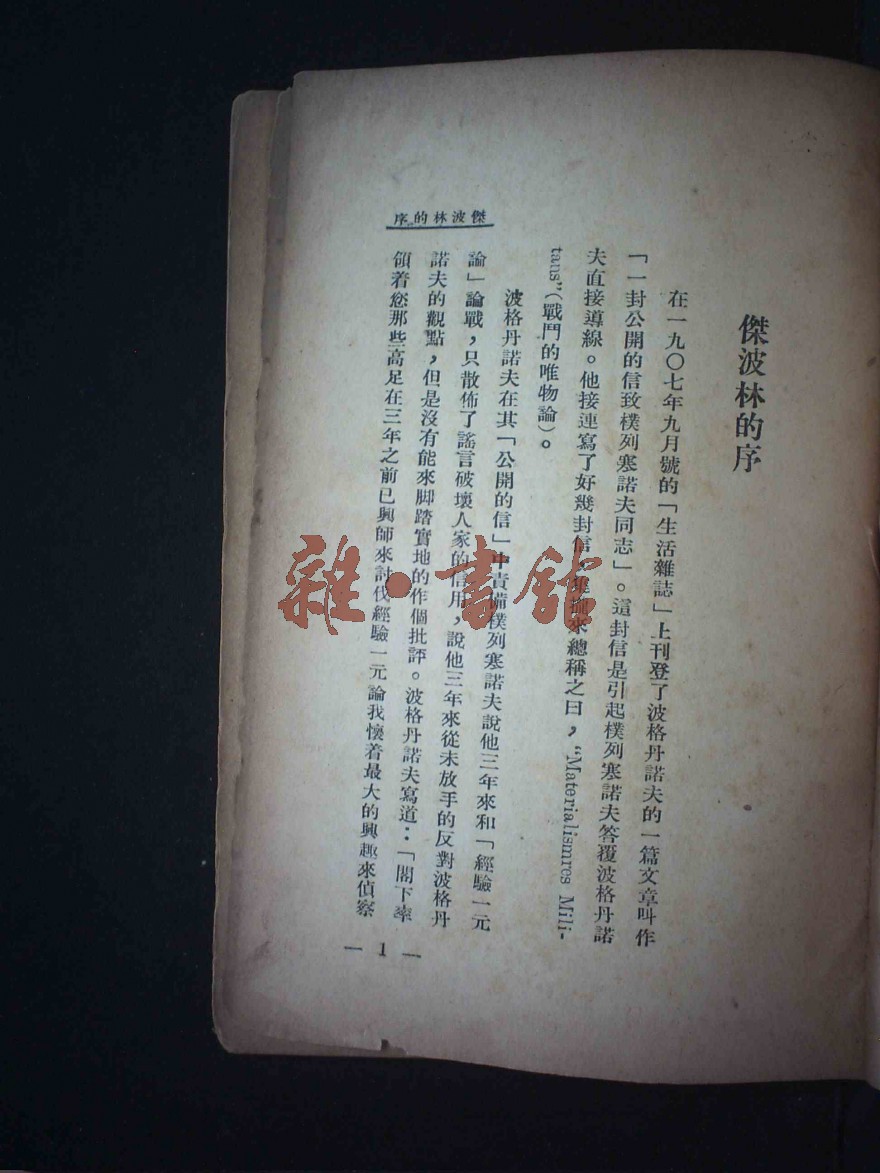 傑波林的序
在一九〇七年九月號的「生活雜誌」上刊登了波格丹諾夫的一篇文章叫作
「一封公開的信致樸列寒諾夫同志」。這封信是引起樸列寒諾夫答覆波格丹諾
夫直接導線。他接連寫了好幾封信來總稱之曰，“Materialismres Mili-
tans”（戰鬥的唯物論）。
波格丹諾夫在其「公開的信」中責備樸列寒諾夫說他三年來和「經驗一元
論」論戰，只散佈了謠言破壞人家的信用，說他三年來從未放手的反對波格丹
諾夫的觀點，但是沒有能來脚踏實地的作個批評。波格丹諾夫寫道：「閣下率
領着您那些高足在三年之前已興師來討伐經驗一元論我懷着最大的興趣來偵察
傑波林的序
— 1 —
雜·書館